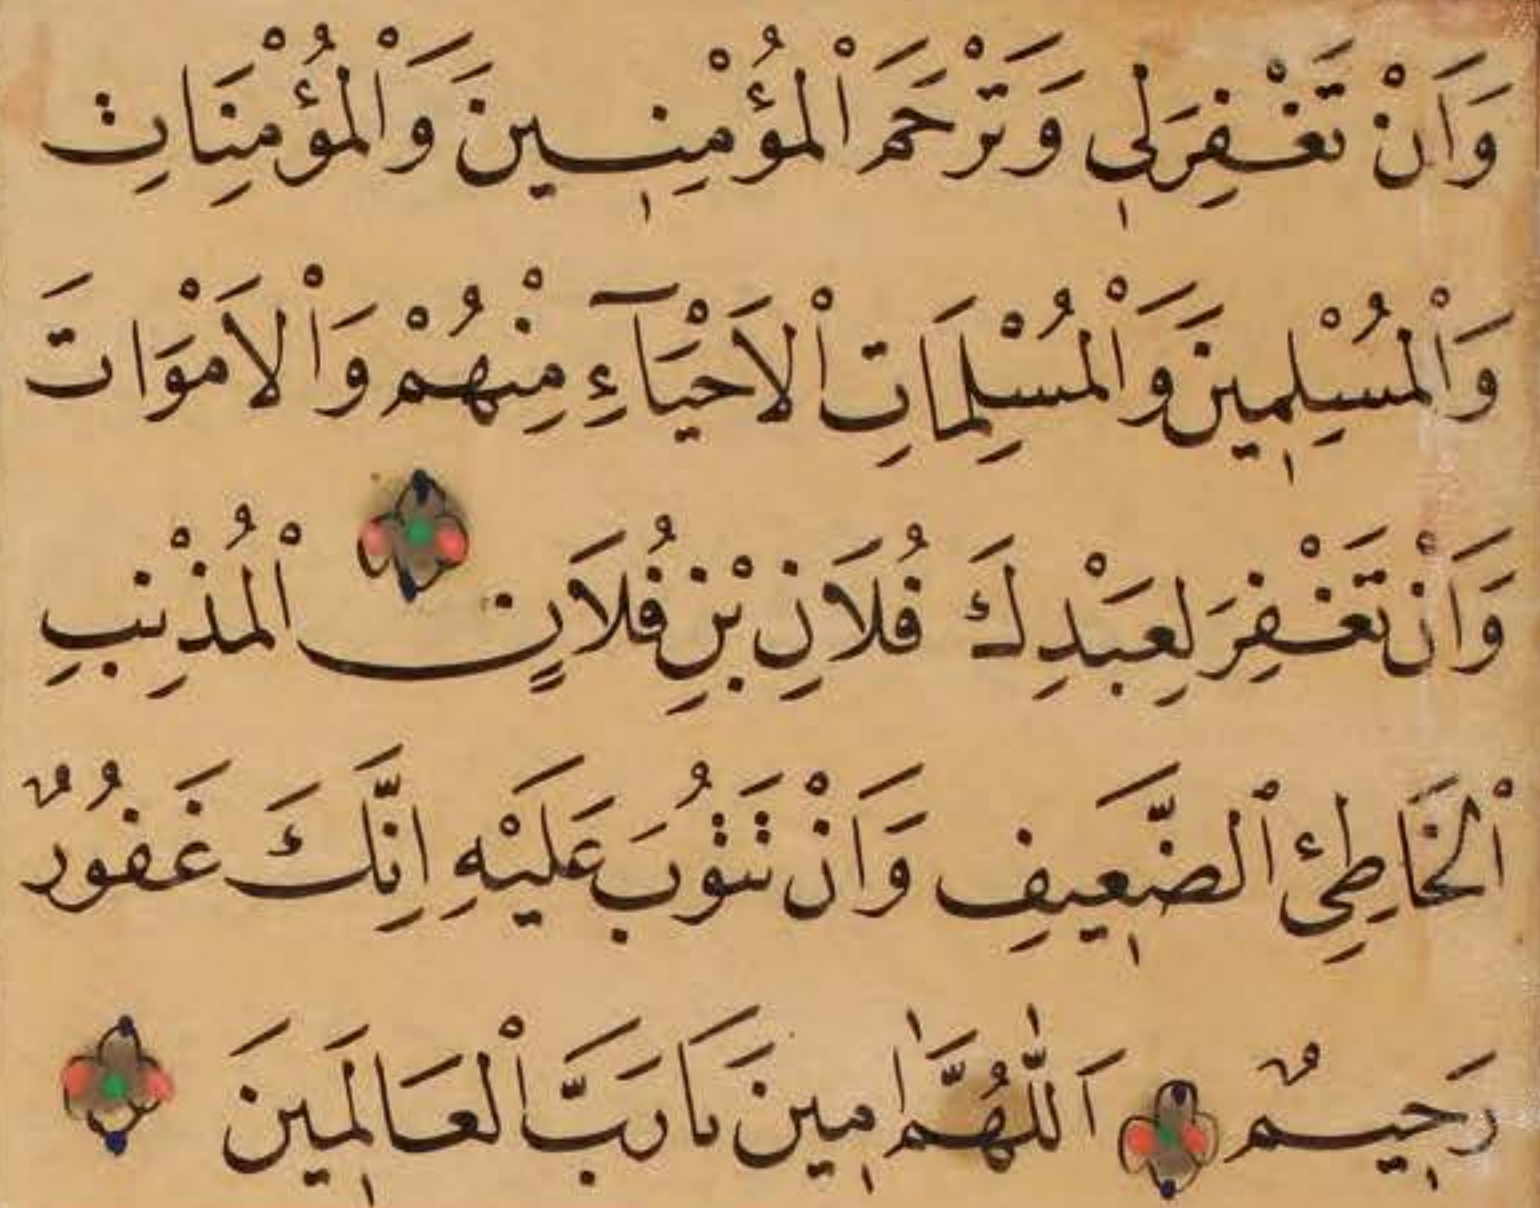 وَاَنْ تَغْفِرَلِي وَتَرْحَمَ الْمُؤْمِنِينَ وَالْمُؤْمِنَاتِ
وَالْمُسْلِمِينَ وَالْمُسْلِمَاتِ الْاَحْيَآءِ مِنْهُمْ وَالْاَمْوَاتَ
وَاَنْ تَغْفِرَ لِعَبْدِكَ فُلَانِ بْنِ فُلَانٍ الْمُذْنِبِ
الْخَاطِئِ الضَّعِيفِ وَاَنْ تَتُوْبَ عَلَيْهِ اِنَّكَ غَفُورٌ
رَحِيمٌ اَللّٰهُمَّ اٰمِينَ يَا رَبَّ الْعَالَمِينَ